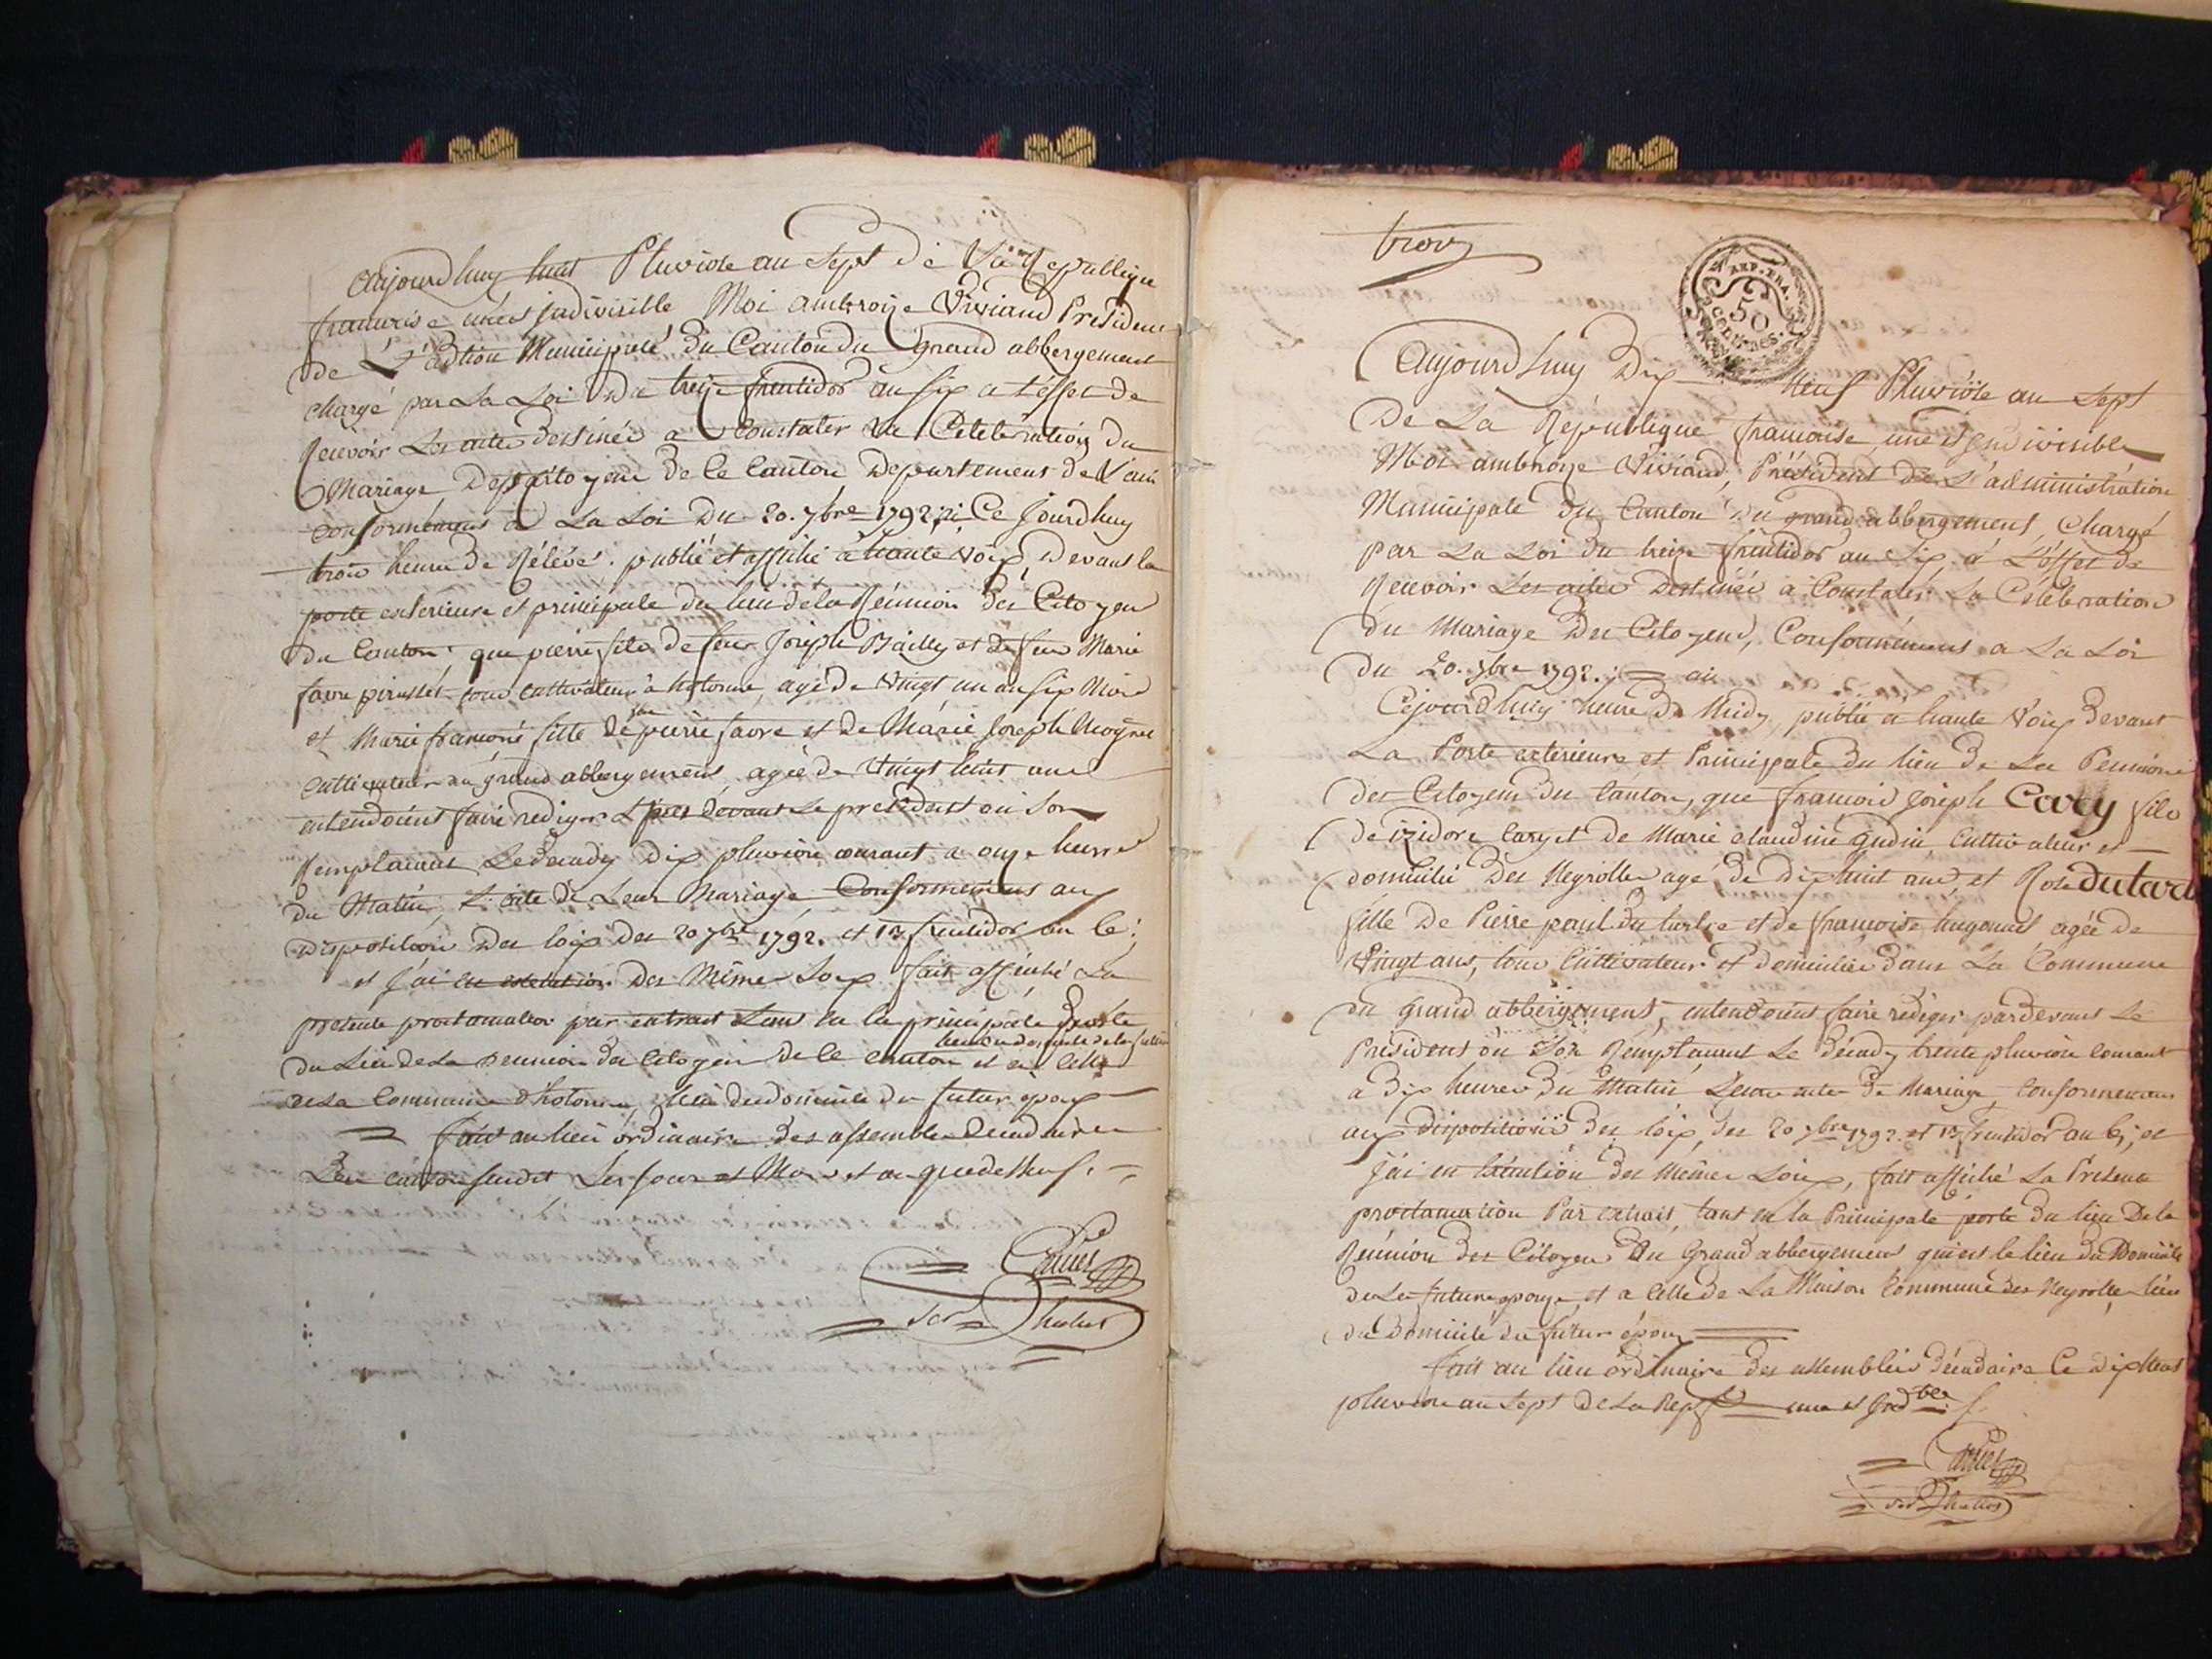 aujourd huy huit Pluviose an sept de La Republique
francoise une et indivisible Moi ambroise Viviand President
de L'adtion Municipale du Canton du Grand abbergement
chargé par La Loi du treize fructidor an six a l'effet de
Recevoir Les actes destinés a Constater La Celebration du
Mariage des citoyens de ce Canton Departement de L'ain
conformément a La Loi Du 20. 7bre 1792 Ce jourdhuy
trois heures de Rélévé publié et affiché à haute Voix Devant la
porte exterieure et principale du lieu de la Réunion des Citoyens
du Canton que pierre fils de feu Joseph Bailly et de feue Marie
favre tous cultivateurs à hotonne, agé de Vingt un an six Mois
et Marie francoise fille de pierre favre et de Marie Joseph
Cultivateur au grand abbergement agée de Vingt huit ans
entendoient faire rediger par devant Le president ou Son
Remplacant Le decady dix pluviose courant a onze heure
du Matin, L'acte de Leur Mariage Conformement aux
Disposition des loix des 20 7bre 1792. et 13 fructidor an 6;
et J'ai en execution des Mêmes Loix fait affiché La
presente proclamation par extrait tant en la principale porte
du Lieu de La Reunion des Citoyens de Ce Canton et en Celle
de La Commune d'hotonne, lieu du domicile du futur epoux
fait au lieu ordinaire des assemblées Decadaire
du canton susdit Les jour et Mois et an que dessus.
trois
REP. FRA.
50
Aujourd huy Dix Neuf Pluviôse an Sept
De La République françoise une et indivisible
Moi ambroise Viviand, Président de L'administration
Municipale du Canton du grand abbergement, Chargé
par La Loi du treize fructidor an Six à L'effet de
Recevoir Les actes Destinés a Constater La Célébration
du Mariage des Citoyens, Conformément a La Loi
du 20. 7bre 1792.
Cejourdhuy heure de Midy, publié à haute Voix devant
La Porte exterieure et Principale du lieu de La Reunion
des Citoyens du Canton, que francois joseph Cary fils
de izidore Cary et de Marie claudine gudin Cultivateur et
domicilié Des Neyrolles agé de dix huit ans, et Rose Dutard
fille de Pierre paul du tartre et de françoise hugonnet agée de
Vingt ans, tous Cultivateurs et domiciliés dans La Commune
du grand abbergement, entendoient faire rediger pardevant Le
President ou Son Remplacant Le décady trente pluviose Courant
a dix heures du Matin Leur acte de Mariage, Conformement
aux dispositions des loix, des 20 7bre 1792. et 13 fructidor an 6; et
J'ai en Exécution des Mêmes Loix, fait affiché La Presente
proclamation Par extrait, tant en la Principale porte du lieu De la
Reunion des Citoyens du Grand abbergement qui est le lieu du Domicile
de La future epouze, et a Celle de La Maison Commune des Neyrolles lieu
du Domicile du futur époux
fait au lieu ordinaire des assemblées décadaire Ce dix Neuf
pluviose an sept de La Rep une et Indble